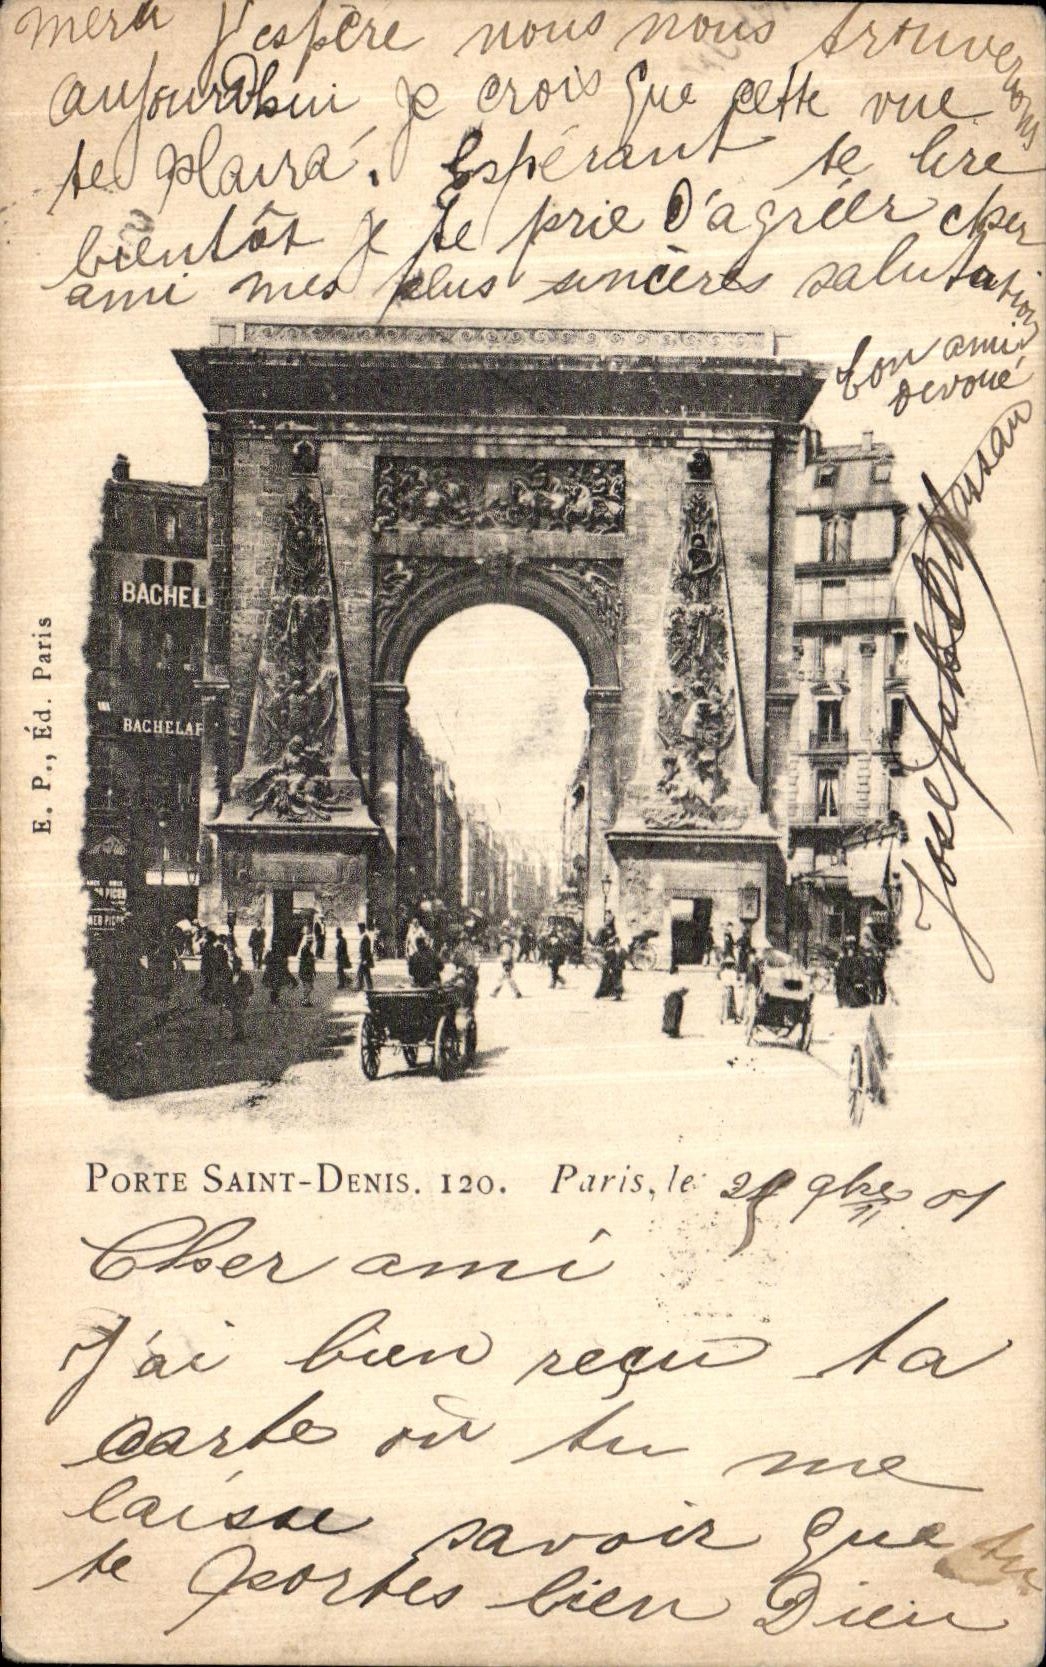 merci j'espère nous nous trouverons
aujourdhui je crois que cette vue
te plaira. Espérant te lire
bientôt je te prie d'agréer cher
ami mes plus sincères salutations
ton ami
devoué
Joseph
BACHEL
BACHELAR
E. P., Éd. Paris
PORTE SAINT-DENIS. 120. Paris, le 9bre 01
11
Cher ami
J'ai bien reçu ta
carte où tu me
laisse savoir que tu
te portes bien Dieu